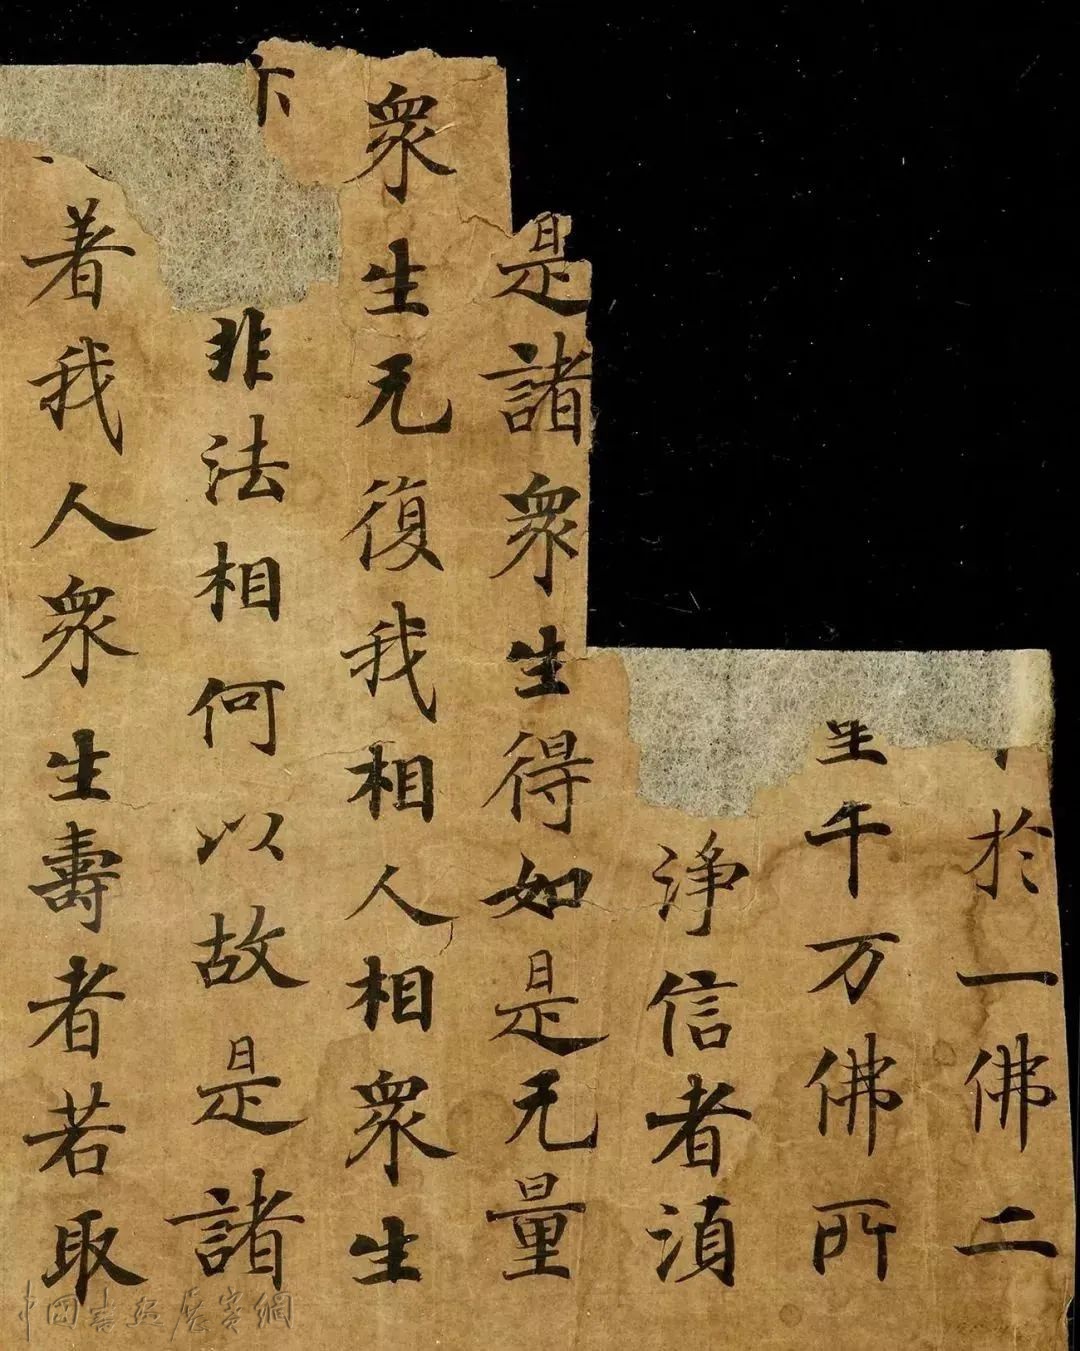 於一佛二
千万佛所
淨信者湏
是諸衆生得如是无量
衆生无復我相人相衆生
非法相何以故是諸
著我人衆生壽者若取
中国书画展赛網